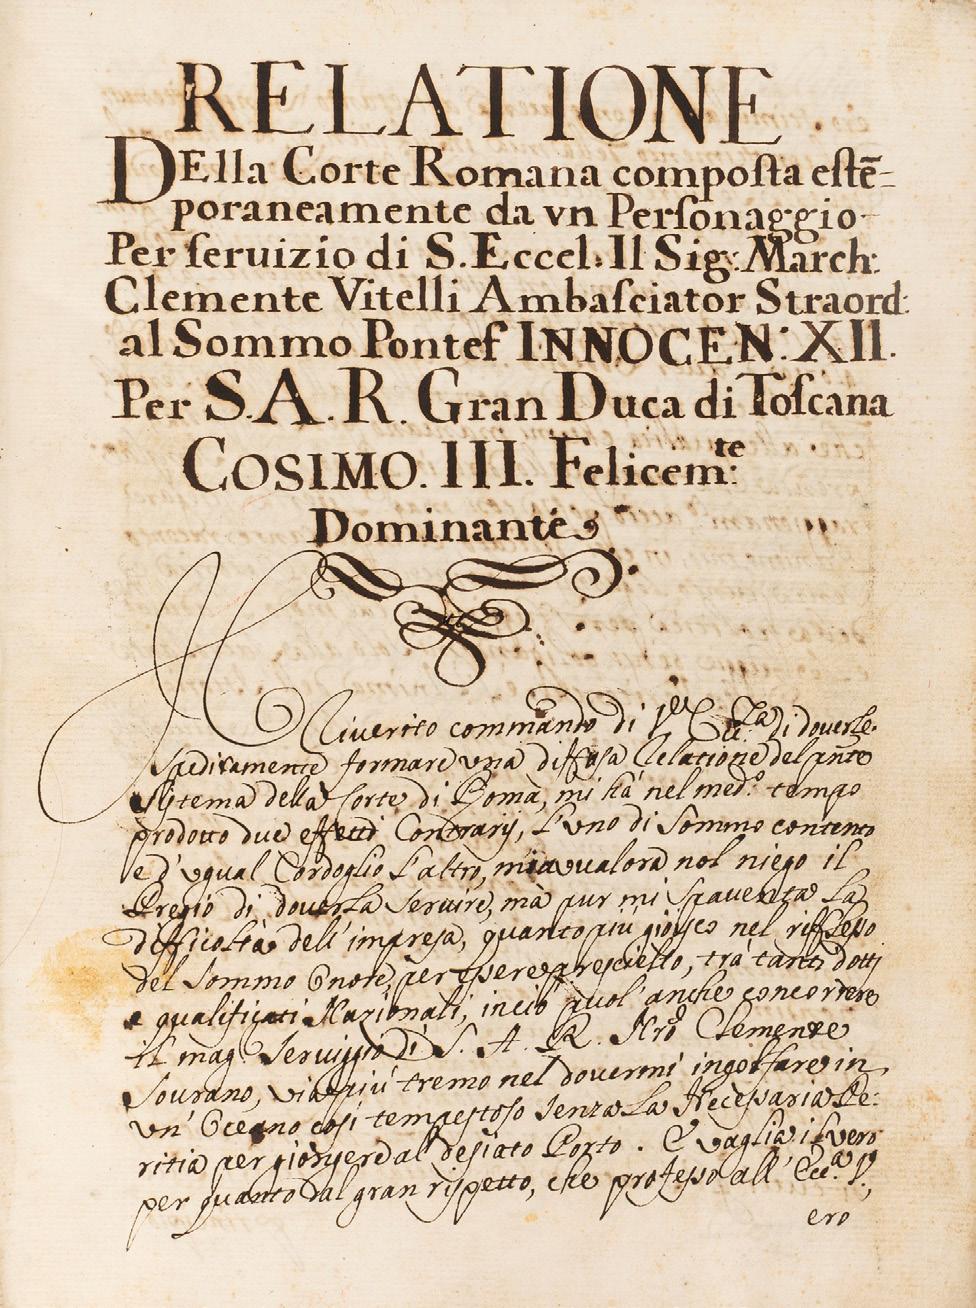 RELATIONE
DElla Corte Romana composta estē=
poraneamente da vn Personaggio
Per seruizio di S. Eccel: Il Sig: March:
Clemente Vitelli Ambasciator Straord:
al Sommo Pontef INNOCEN: XII.
Per S. A. R. Gran Duca di Toscana
COSIMO. III. Felicem:te
Dominante
Il Riuerito commando di Ecc.za di douerle
speditamente formare una diffusa Relatione del pnte
Sistema della Corte di Roma, mi hà nel med.o tempo
prodotto due effetti Contrarij, l'uno di Sommo contento
e d'ugual Cordoglio l'altro, m'inualora nol niego il
Pregio di douerla Seruire, mà pur mi Spauenta la
difficoltà dell'impresa, quanto più gioisco nel riflesso
del Sommo Onore, per essere prescielto, trà tanti dotti
e qualificati Nazionali, in ciò puol' anche concorrere
il mag. Seruiggio di S. A. R. Nrō Clemente
Sourano, via più tremo nel douermi ingolfare in
un' Oceano così tempestoso senza la Necessaria Pe:
ritia per giongere al desiato Porto. E vaglia il vero
per quanto dal gran rispetto, che professo all' Ecc.a V,
ero